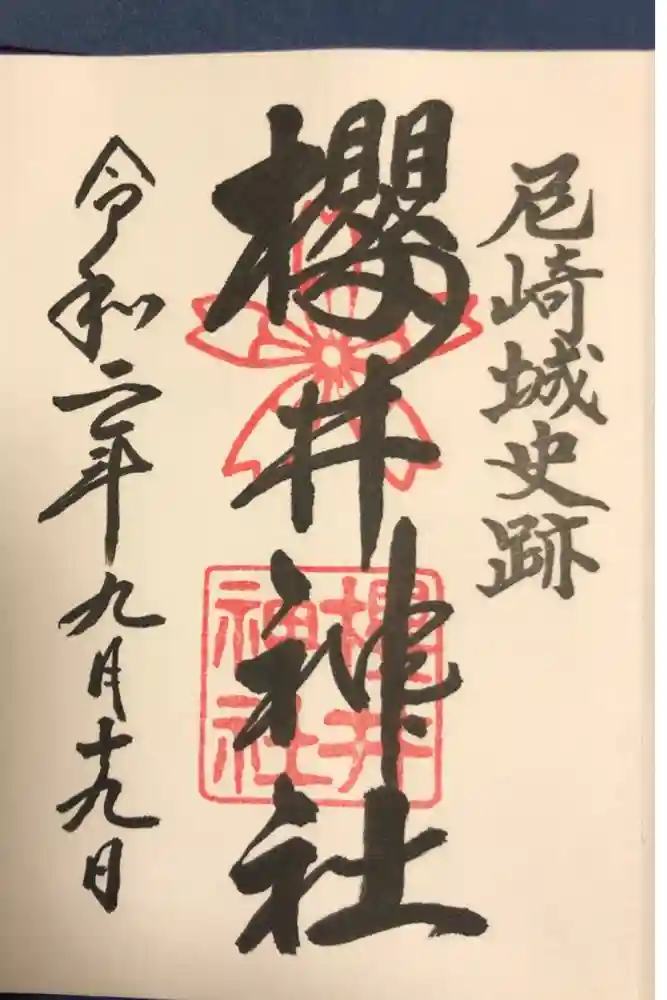 尼崎城史跡
櫻井神社
櫻井
神社
令和二年九月十九日